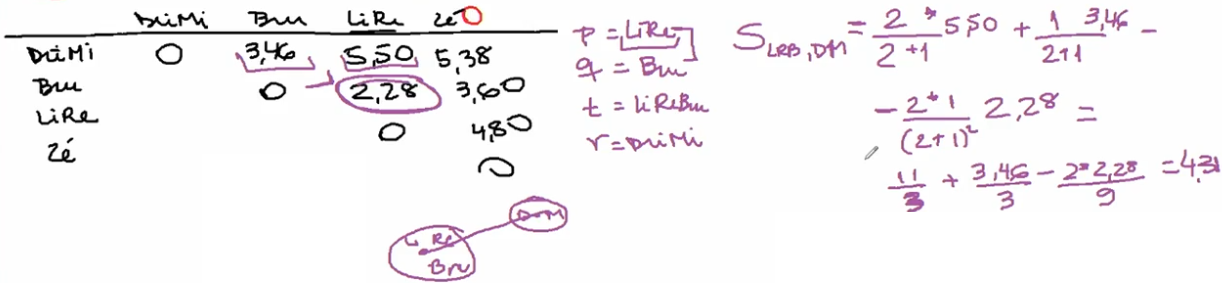 DuiMi Bru LiRe Zé
DuiMi 0 3,46 5,50 5,38
Bru 0 2,28 3,60
LiRe 0 4,80
Zé 0
p = LiRe
q = Bru
t = LiReBru
r = DuiMi
S LRB,DM = 2 * / 2+1 5,50 + 1 / 2+1 3,46 -
- 2*1 / (2+1)² 2,28 =
11/3 + 3,46/3 - 2*2,28/9 = 4,31
DuiM
Li Re
Bru